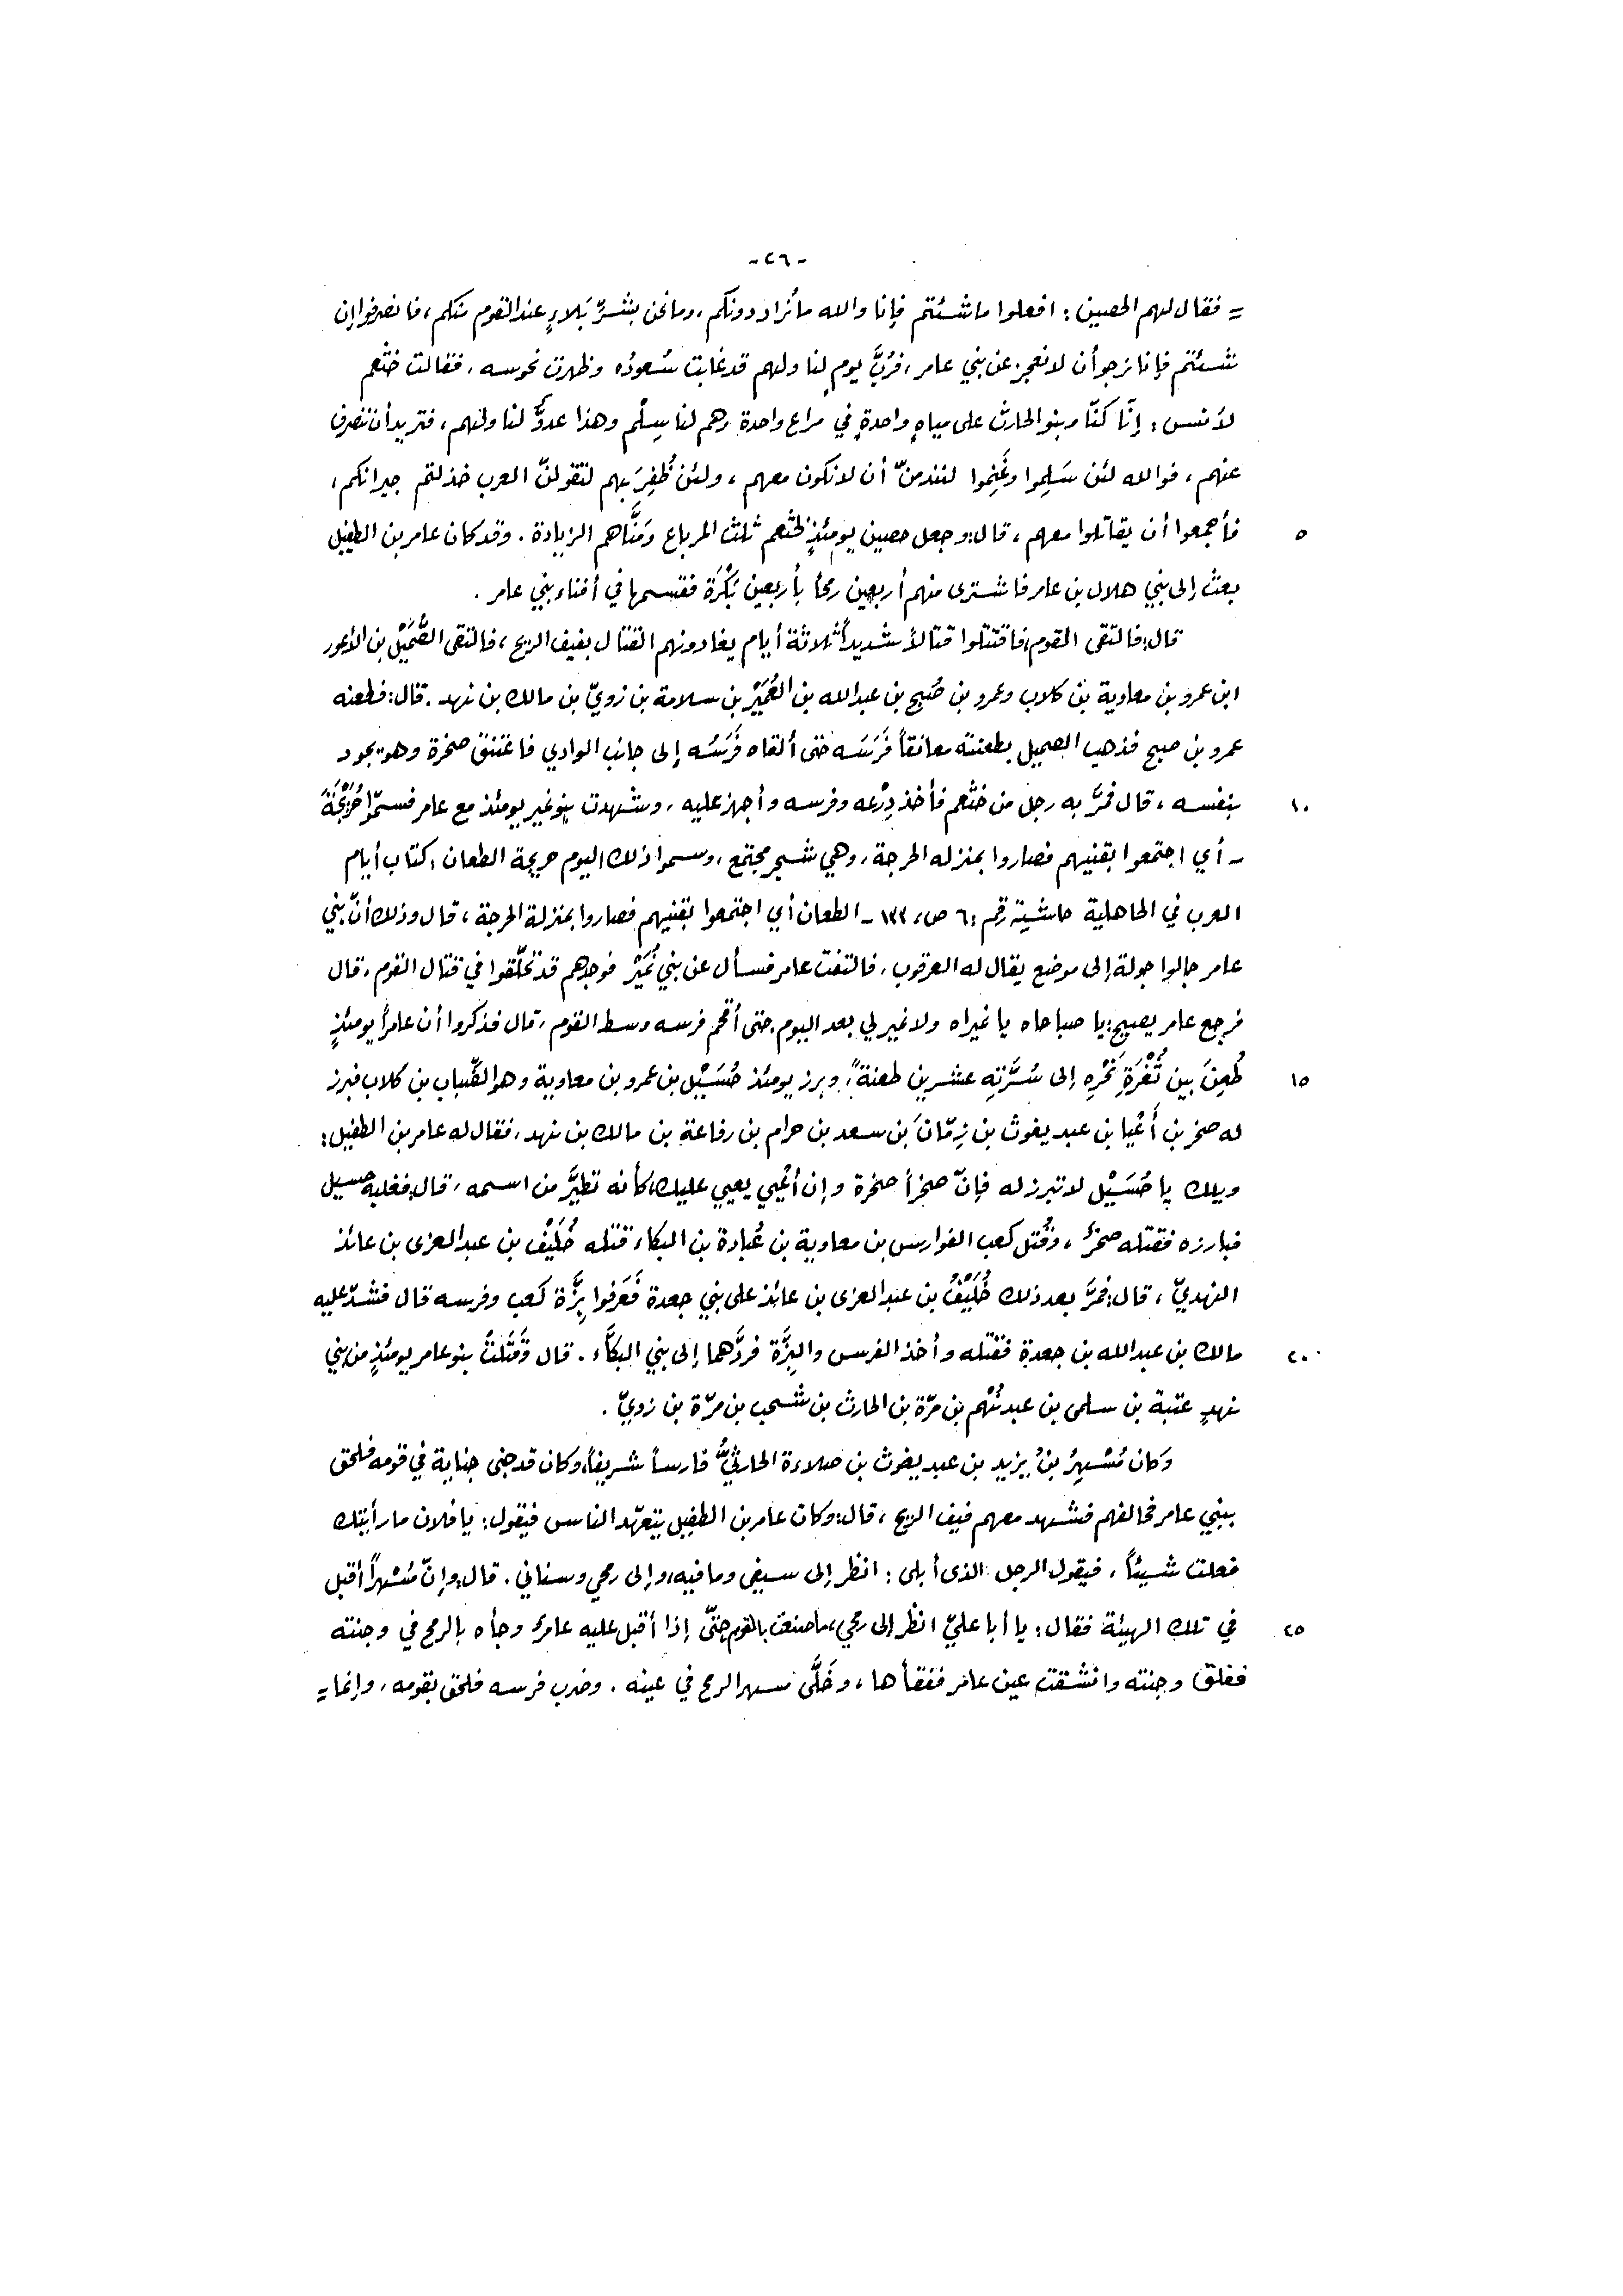 - ٢٦ -
= فقال لهم الحصين : افعلوا ما شئتم فإنا والله ما نُراد دونكم، وما نحن بشرِّ بَلاءٍ عند القوم منكم، فانصرفوا إن
شئتم فإنا نرجو أن لا نعجز عن بني عامر، فرُبَّ يومٍ لنا ولهم قد غابت سُعودُه وظهرت نحوسه، فقالت خثعم
لأنس : إنّا كنّا وبنو الحارث على مياهٍ واحدةٍ في مراعٍ واحدة وهم لنا سِلْم وهذا عدوٌّ لنا ولهم، فتريد أن تنصرف
عنهم، فوالله لئن سَلِموا وغَنِموا لنندمنّ أن لا نكون معهم، ولئن ظُفِرَ بهم لتقولنّ العرب خذلتم جيرانكم،
٥ فأجمعوا أن يقاتلوا معهم، قال: وجعل حصين يومئذٍ لخثعم ثلث المرباع ومَنَّاهم الزيادة . وقد كان عامر بن الطفيل
بعث إلى بني هلال بن عامر فاشترى منهم أربعين رمحاً بأربعين بَكْرَة فقسمها في أفناء بني عامر .
قال: فالتقى القوم، فاقتتلوا قتالاً شديداً ثلاثة أيام يغادونهم القتال بفيف الريح، فالتقى الصُّمَيْل بن الأعور
ابن عمرو بن معاوية بن كلاب وعمرو بن صُبيح بن عبد الله بن العُمَيْر بن سلامة بن زويّ بن مالك بن نهد . قال: فطعنه
عمرو بن صبيح فذهب الصميل بطعنته معانقاً فَرَسَه حتى ألقاه فَرَسُه إلى جانب الوادي فاعتنق صخرة وهو يجود
١٠ بنفسه، قال فمرَّ به رجل من خثعم فأخذ دِرْعه وفرسه وأجهز عليه، وشهدت بنو نمير يومئذ مع عامر فسمّوا حُرَيْجَةَ
- أي اجتمعوا بقنيهم فصاروا بمنزله الحرجة، وهي شجر مجتمع، وسموا ذلك اليوم حريجة الطعان ، كتاب أيام
العرب في الجاهلية حاشية رقم : ٦ ص، ١٣٣ - الطعان أي اجتمعوا بقنيهم فصاروا بمنزلة الحرجة، قال وذلك أنّ بني
عامر جالوا جولة إلى موضع يقال له العرقوب، فالتفت عامر فسأل عن بني نُمَيْر فوجدهم قد تخلّفوا في قتال القوم، قال
فرجع عامر يصيح: يا صباحاه يا نميراه ولا نمير لي بعد اليوم. حتى أقحم فرسه وسط القوم، قال فذكروا أن عامراً يومئذٍ
١٥ طُعِنَ بين ثُغْرَةِ نَحْرِهِ إلى سُرَّتِهِ عشرين طعنةً، وبرز يومئذ حُسَيْل بن عمرو بن معاوية وهو الضّباب بن كلاب فبرز
له صخر بن أَعْيا بن عبد يغوث بن زِمّانَ بن سعد بن حرام بن رفاعة بن مالك بن نهد، فقال له عامر بن الطفيل :
ويلك يا حُسَيْل لا تبرز له فإنّ صخراً صخرة وإن أعْيى يعيي عليك، كأنه تطيَّر من اسمه، قال: فغلبه حسيل
فبارزه فقتله صخرٌ، وقُتل كعب الفوارس بن معاوية بن عُبادة بن البكاء قتله خُلَيْف بن عبد العزى بن عائذ
النهديّ، قال: فمرَّ بعد ذلك خُلَيْفُ بن عبد العزى بن عائذ على بني جعدة فَعَرَفوا بِزَّة كعب وفرسه قال فشدّ عليه
٢٠ مالك بن عبد الله بن جعدة فقتله وأخذ الفرس والبِزَّة فردَّهما إلى بني البكَّاء . قال وقَتَلَتْ بنو عامر يومئذٍ من بني
نهدٍ عتبة بن سلمى بن عبد نُهْم بن مرّة بن الحارث بن شحب بن مرّة بن زويّ .
وكان مُسْهِرُ بنُ يزيد بن عبد يغوث بن صلاءة الحارثيُّ فارساً شريفاً، وكان قد جنى جناية في قومه فلحق
ببني عامر فحالفهم فشهد معهم فيف الريح، قال: وكان عامر بن الطفيل يتعهّد الناس فيقول : يا فلان ما رأيتك
فعلت شيئاً، فيقول الرجل الذى أبلى : انظر إلى سيفي وما فيه، وإلى رمحي وسناني . قال: وإنّ مُسْهِراً أقبل
٢٥ في تلك الهيئة فقال : يا أبا عليّ انظُر إلى رمحي، ما صنعت بالقوم، حتّى إذا أقبل عليه عامرٌ وجأه بالرمح في وجنته
ففلق وجنته وانشقت عين عامر ففقأها، وخَلَّى مسهر الرمح في عينه . وضرب فرسه فلحق بقومه، وإنما =